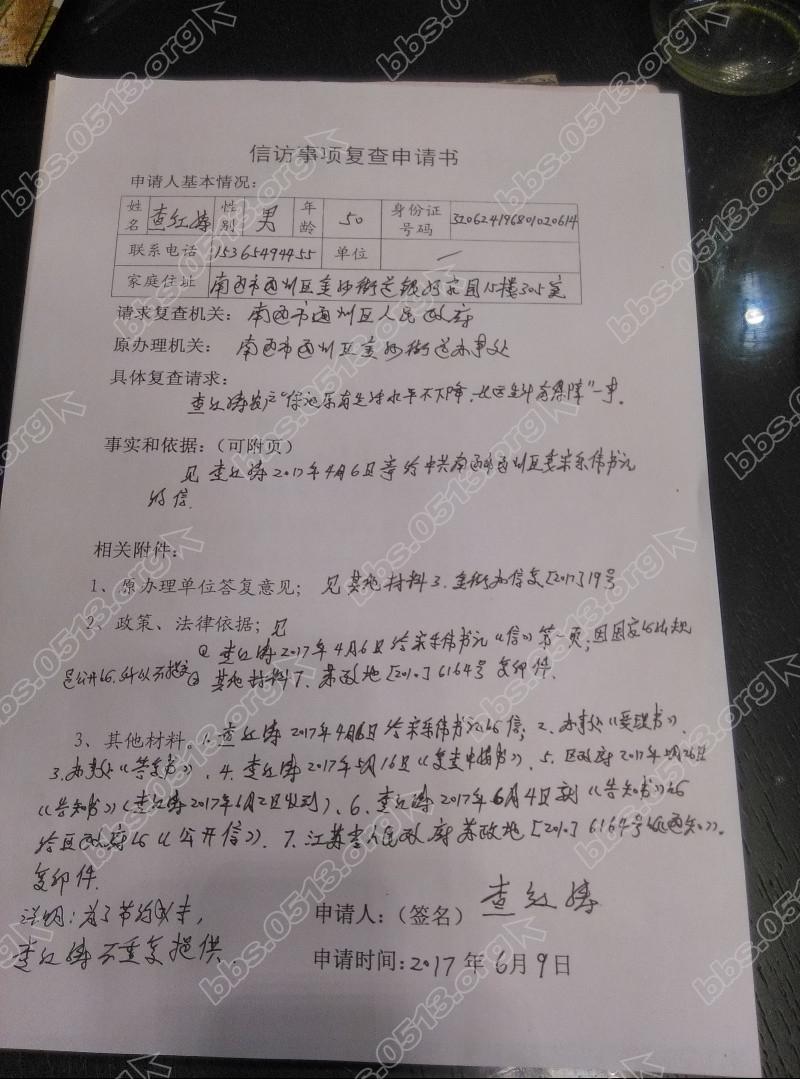 信访事项复查申请书
申请人基本情况:
姓名 查红涛 性别 男 年龄 50 身份证号码 320624196801020614
联系电话 15365494455 单位 /
家庭住址 南通市通州区金沙街道银河家园15楼305室
请求复查机关: 南通市通州区人民政府
原办理机关: 南通市通州区金沙街道办事处
具体复查请求:
查红涛要产"保证原有生活水平不下降,长远生计有保障"一事.
事实和依据:(可附页)
见 查红涛2017年4月6日寄给中共南通市通州区委宋乐伟书记
的信.
相关附件:
1、原办理单位答复意见; 见其他材料3.金街办信复[2017]19号
2、政策、法律依据; 见
① 查红涛2017年4月6日给宋乐伟书记《信》第一页,因国家的法规
是公开的,所以不提交 ② 其他材料7.苏政地[2010]6164号复印件.
3、其他材料。1.查红涛2017年4月6日给宋乐伟书记的信; 2.办事处《受理书》.
3.办事处《答复书》.4.查红涛2017年5月16日《复查申请书》.5.区政府2017年5月26日
《告知书》(查红涛2017年6月2日收到).6.查红涛2017年6月4日到《告知书》的
给区政府的《公开信》.7.江苏省人民政府苏政地[2010]6164号《通知》.
复印件.
说明:为了节约成本,
查红涛不重复提供.
申请人:(签名) 查红涛
申请时间:2017年6月9日
bbs.0513.org